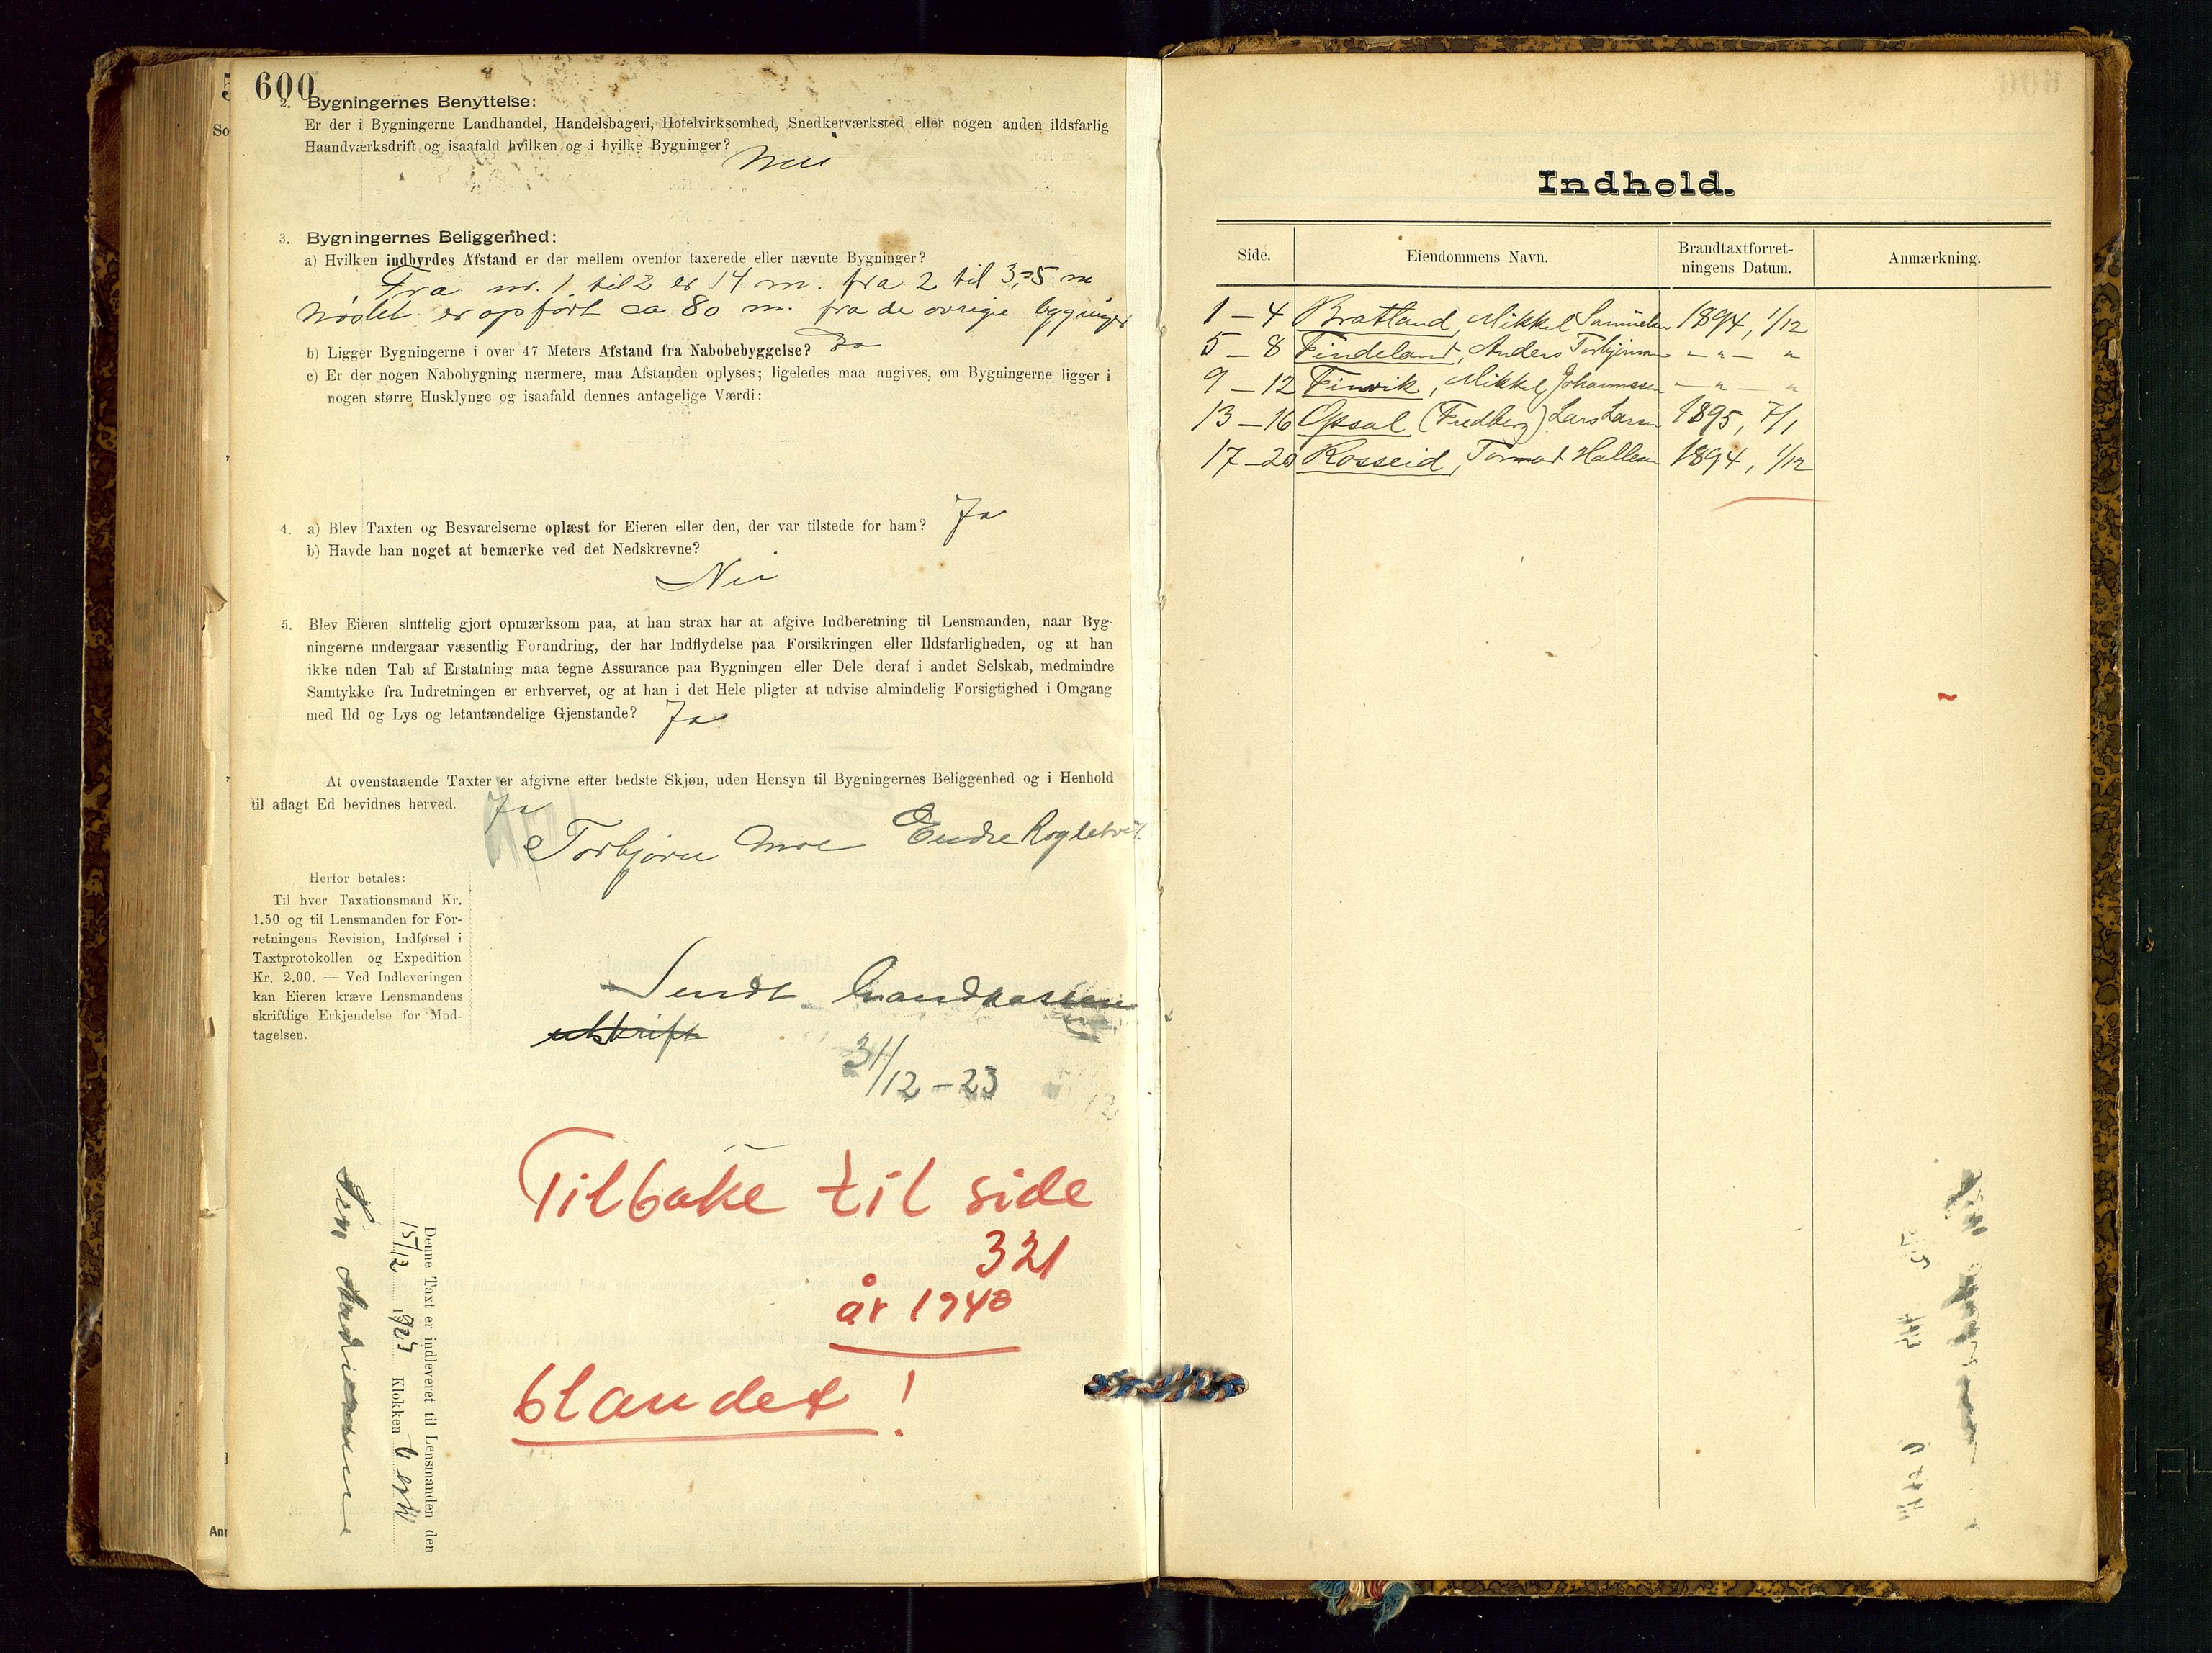 600
2. Bygningernes Benyttelse:
Er der i Bygningerne Landhandel, Handelsbageri, Hotelvirksomhed, Snedkerværksted eller nogen anden ildsfarlig
Haandværksdrift og isaafald hvilken og i hvilke Bygninger?
Nei
3. Bygningernes Beliggenhed:
a) Hvilken indbyrdes Afstand er der mellem ovenfor taxerede eller nævnte Bygninger?
Fra nr. 1 til 2 er 14 m. fra 2 til 3, 5 m
Nøstet er opført ca 80 m. fra de øvrige bygninger
b) Ligger Bygningerne i over 47 Meters Afstand fra Nabobebyggelse? Ja
c) Er der nogen Nabobygning nærmere, maa Afstanden oplyses; ligeledes maa angives, om Bygningerne ligger i
nogen større Husklynge og isaafald dennes antagelige Værdi:
4. a) Blev Taxten og Besvarelserne oplæst for Eieren eller den, der var tilstede for ham? Ja
b) Havde han noget at bemærke ved det Nedskrevne?
Nei
5. Blev Eieren sluttelig gjort opmærksom paa, at han strax har at afgive Indberetning til Lensmanden, naar Byg-
ningerne undergaar væsentlig Forandring, der har Indflydelse paa Forsikringen eller Ildsfarligheden, og at han
ikke uden Tab af Erstatning maa tegne Assurance paa Bygningen eller Dele deraf i andet Selskab, medmindre
Samtykke fra Indretningen er erhvervet, og at han i det Hele pligter at udvise almindelig Forsigtighed i Omgang
med Ild og Lys og letantændelige Gjenstande? Ja
At ovenstaaende Taxter er afgivne efter bedste Skjøn, uden Hensyn til Bygningernes Beliggenhed og i Henhold
til aflagt Ed bevidnes herved. Ja
Torbjørn Moe Endre
Herfor betales:
Til hver Taxationsmand Kr.
1.50 og til Lensmanden for For-
retningens Revision, Indførsel i
Taxtprotokollen og Expedition
Kr. 2.00. — Ved Indleveringen
kan Eieren kræve Lensmandens
skriftlige Erkjendelse for Mod-
tagelsen.
Sendt brandkassen
utskrift
31/12-23
Tilbake til side
321
år 1940
blandet!
Denne Taxt er indleveret til Lensmanden den
15/12 1923 Klokken 6 em
Indhold.
Side. Eiendommens Navn. Brandtaxtforret-
ningens Datum. Anmærkning.
1-4 Bratland, Mikkel Samuelsen 1894, 1/12
5-8 Findeland, Anders Torbjörnsen - " - "
9-12 Finvik, Mikkel Johannesen - " - "
13-16 Opsal (Fredberg) Lars Larsen 1895, 7/1
17-20 Rosseid, Tormod Hallesen 1894, 1/12